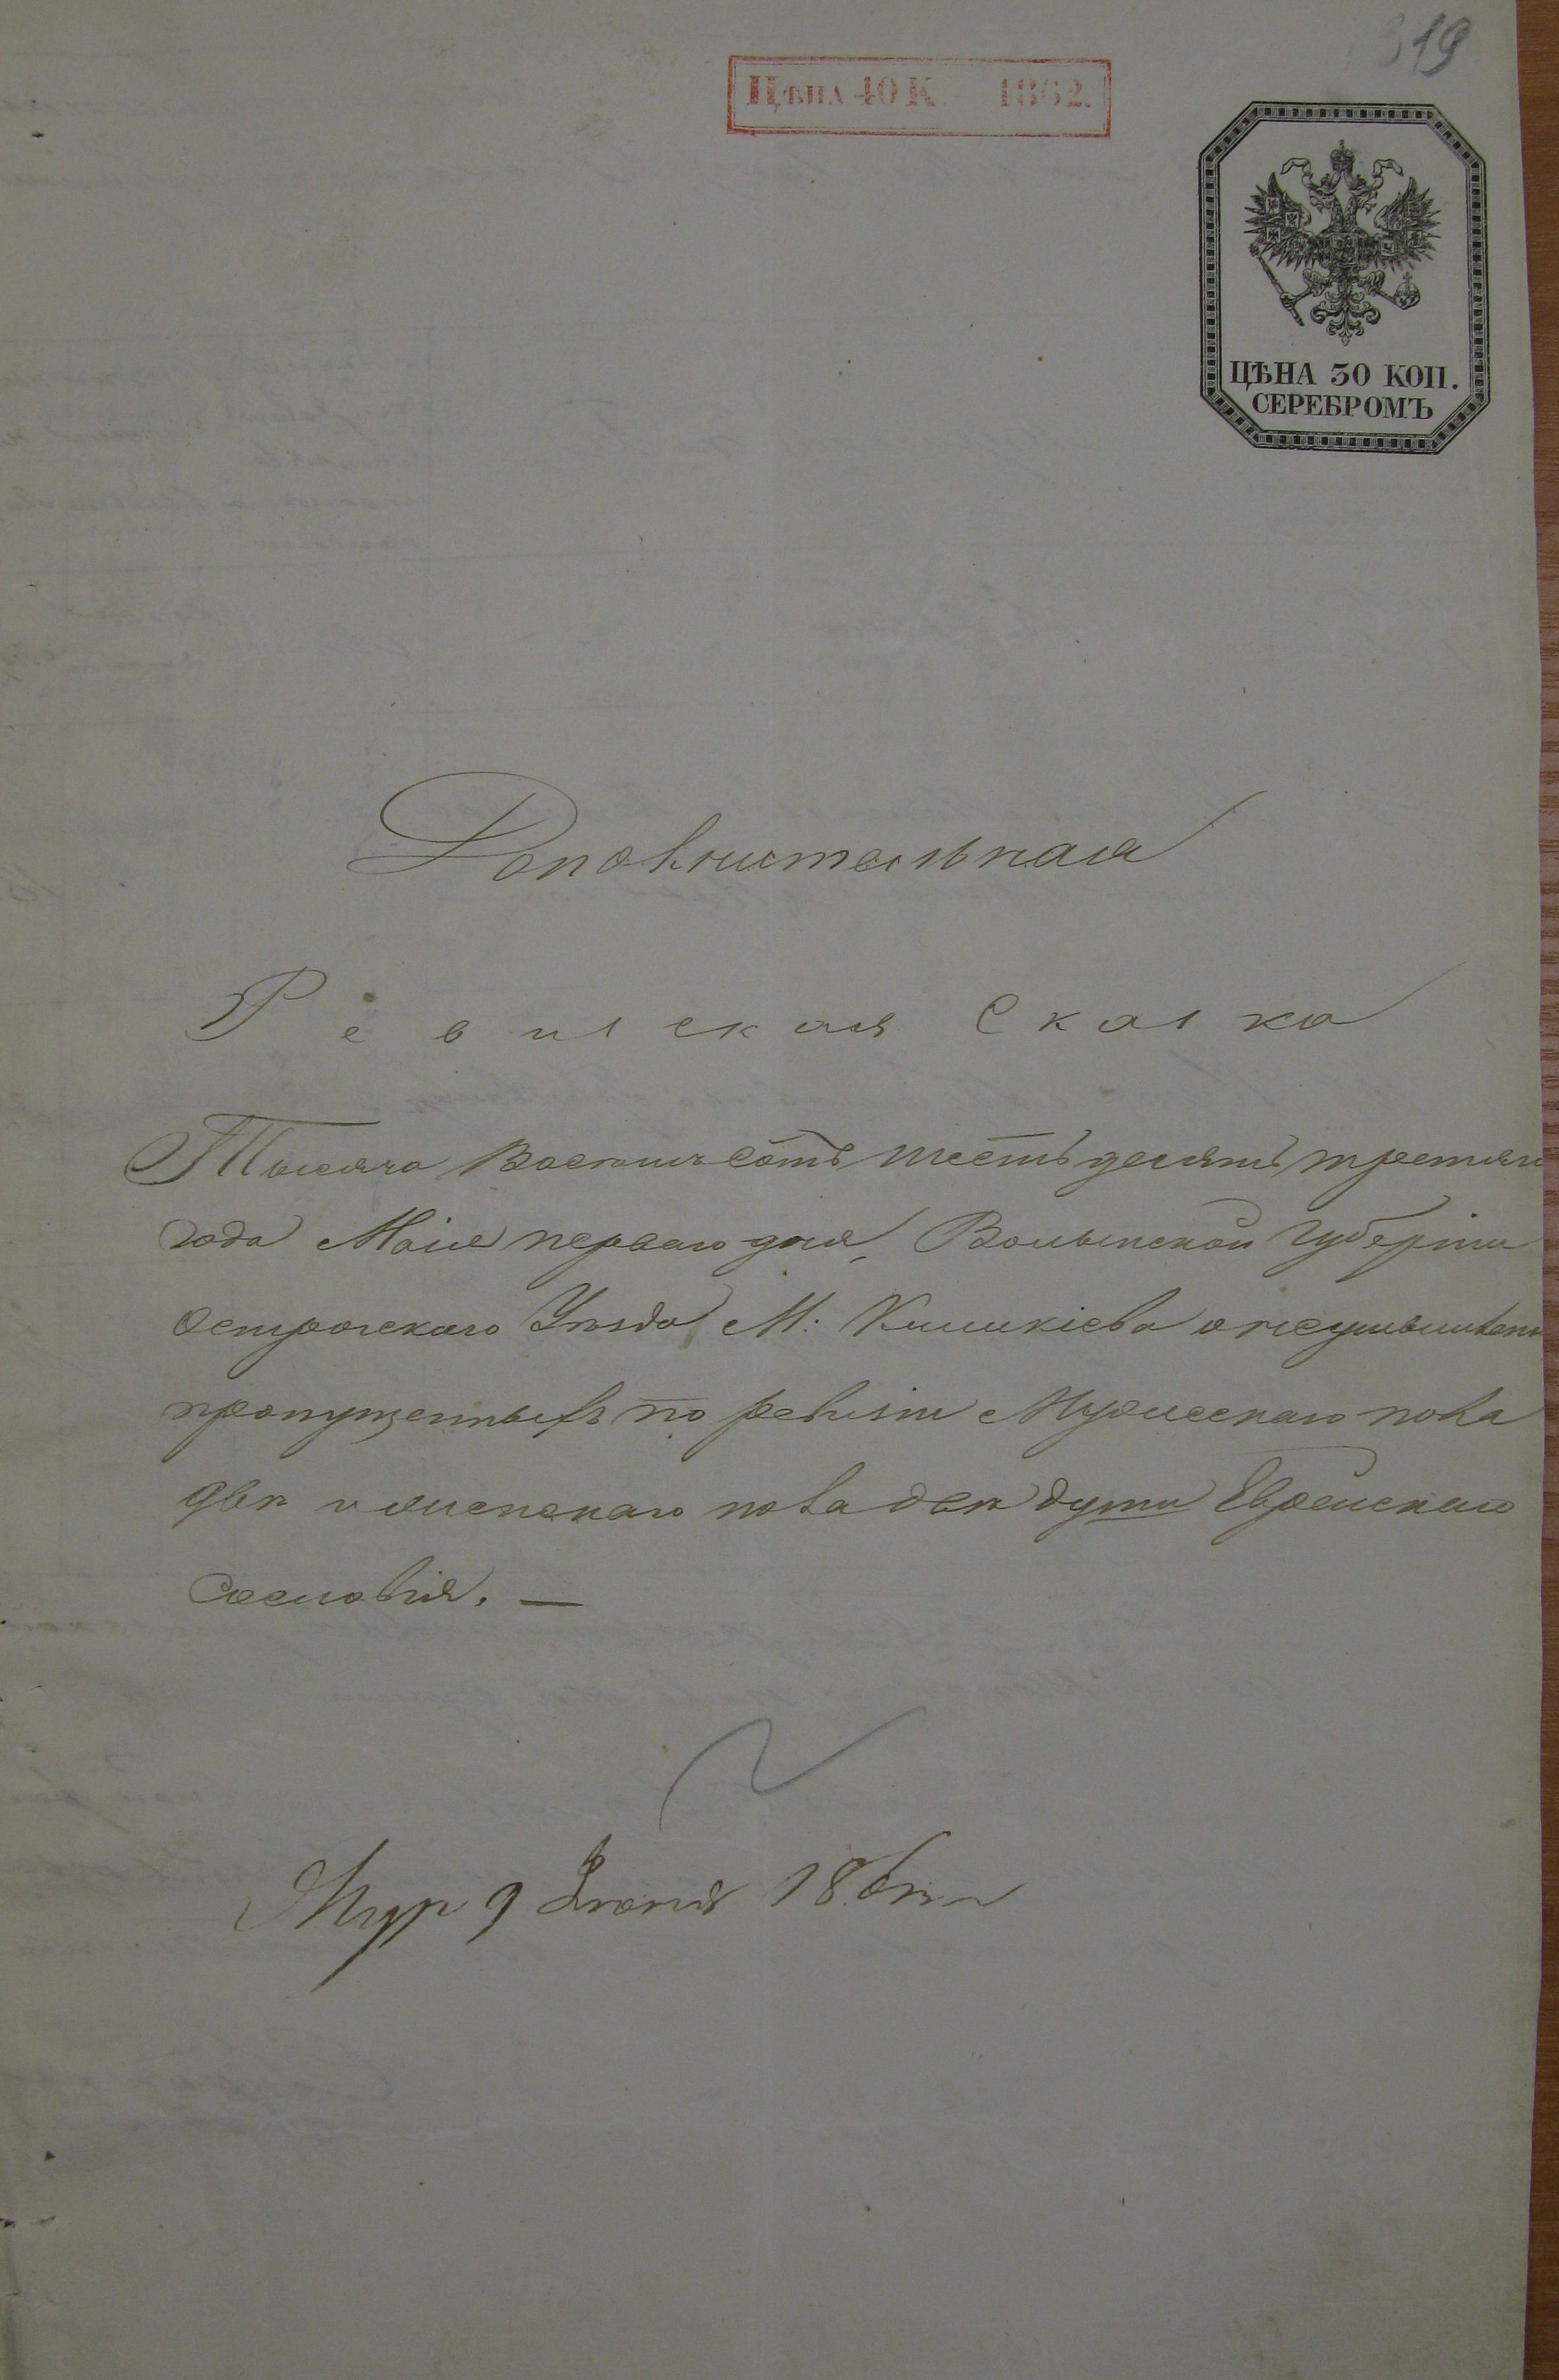 319
Цѣна 40 К. 1862.
ЦѢНА 30 КОП.
СЕРЕБРОМЪ
Дополнительная
Ревиская Скаска
Тысяча Восемъсотъ шестьдесятъ третяго
года Маія перваго дня, Волынской Губерніи
Острогскаго Уѣзда М: Киликіева о
пропущенныхъ по ревизіи Мужескаго пола
двѣ и женскаго пола двѣ души Еврейскаго
Сословія. —
9 Іюня